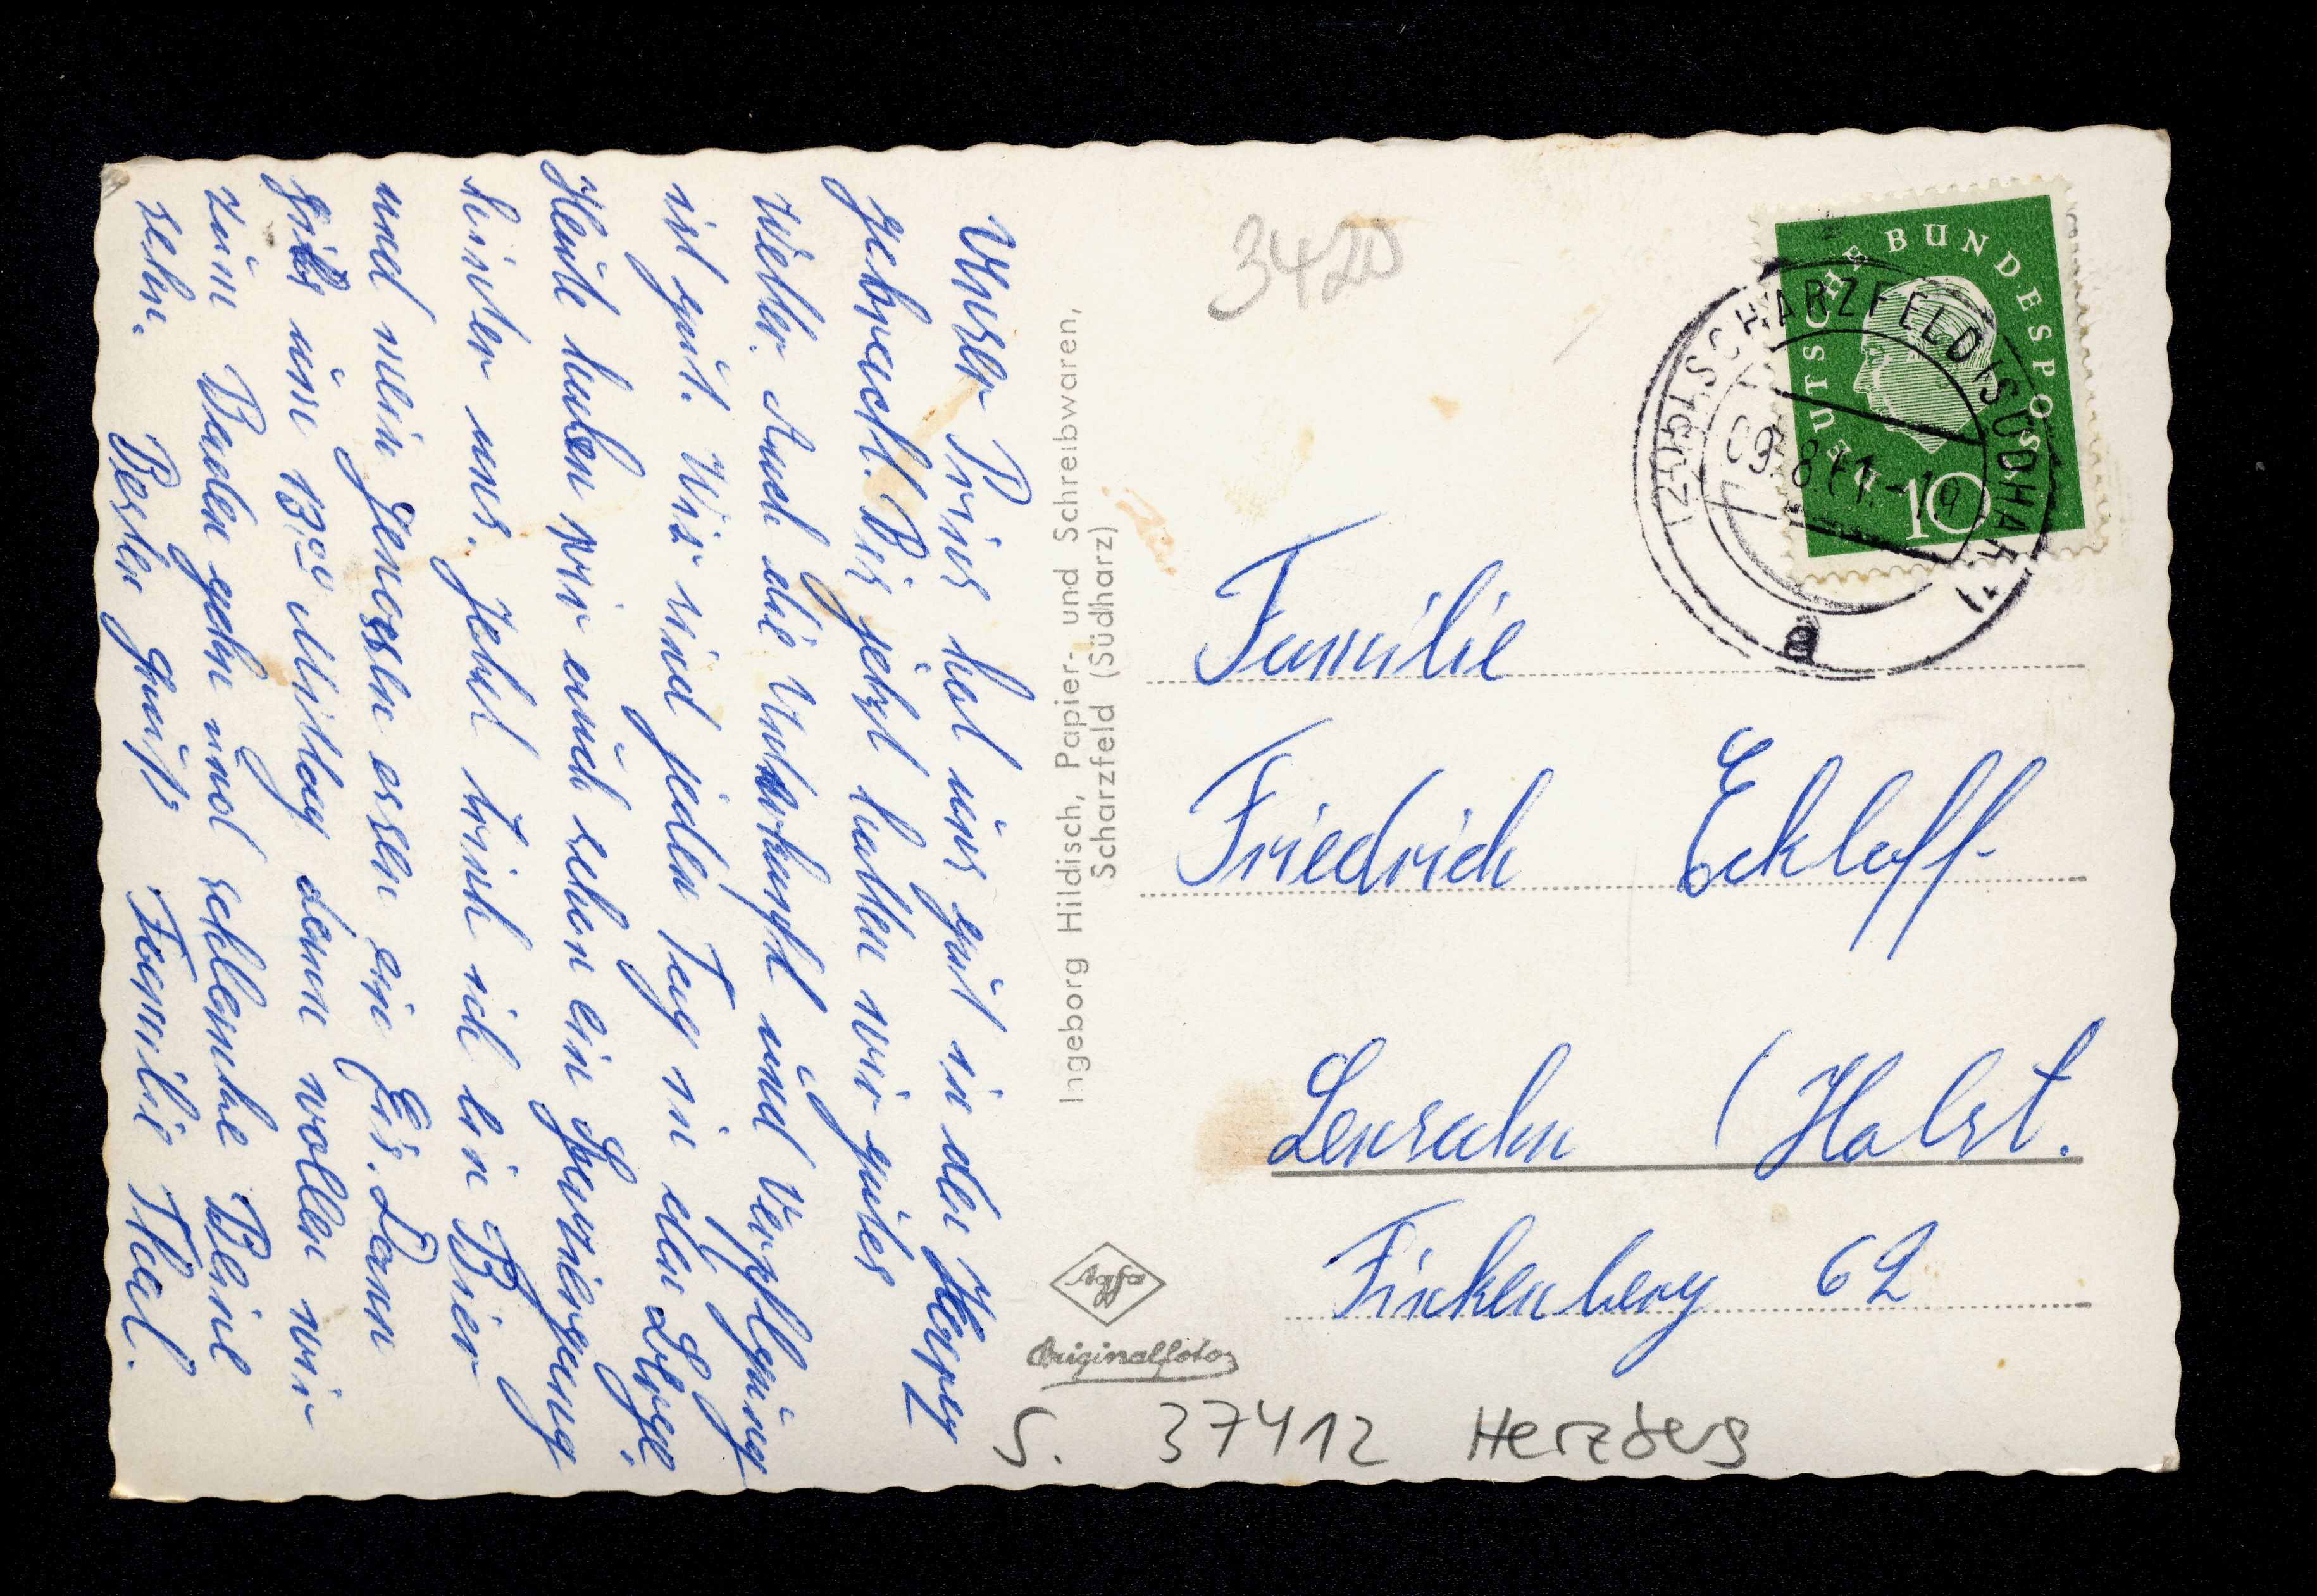 Unser Prius hat uns gut in den Harz
gebracht. Bis jetzt hatten wir gutes
Wetter. Auch die Unterkunft und Verpflegung
ist gut. Wir sind jeden Tag in den Berge.
Heute haben wir auch schon ein Spaziergang
hinter uns. Jetzt trink ich ein Bier
und mein Genossen essen ein Eis. Dann
gibts um 13.00 Mittag dann wollen wir
zum Baden gehn und schlanke Beine
sehn. Beste Grüße Familie Theel.
Ingeborg Hildisch, Papier- und Schreibwaren,
Scharzfeld (Südharz)
Agfa
Originalfoto
3420
DEUTSCHE BUNDESPOST
10
SCHARZFELD (SÜDHARZ)
a
Familie
Friedrich Eckloff
Lensahn (Holst.
Finkenberg 62
S. 37412 Herzberg